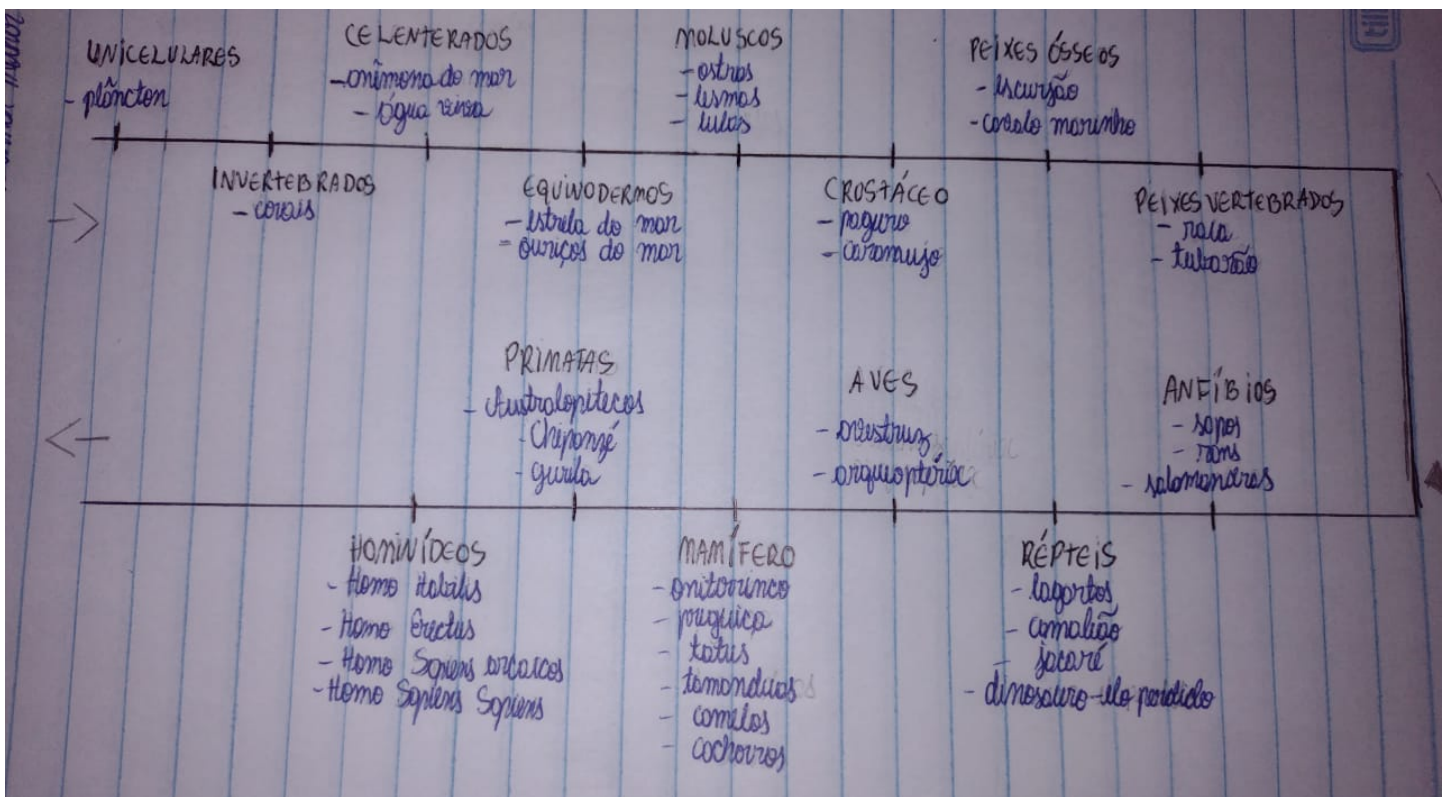 UNICELULARES
- plâncton
CELENTERADOS
- anêmona do mar
- água viva
MOLUSCOS
- ostras
- lesmas
- lulas
PEIXES ÓSSEOS
- escurjão
- cavalo marinho
INVERTEBRADOS
- corais
EQUINODERMOS
- estrela do mar
- ouriços do mar
CROSTÁCEO
- paguro
- caramujo
PEIXES VERTEBRADOS
- raia
- tubarão
PRIMATAS
- Australopitecos
- Chipanzé
- gurila
AVES
- avestruz
- arqueoptérix
ANFÍBIOS
- sapos
- rans
- salamandras
HOMINÍDEOS
- Homo Habilis
- Homo Erectus
- Homo Sapiens arcaicos
- Homo Sapiens Sapiens
MAMÍFERO
- onitorrinco
- priguiça
- tatus
- tamanduás
- camelos
- cachorros
RÉPTEIS
- lagartos
- camalião
- jacaré
- dinosauro - elo perdido